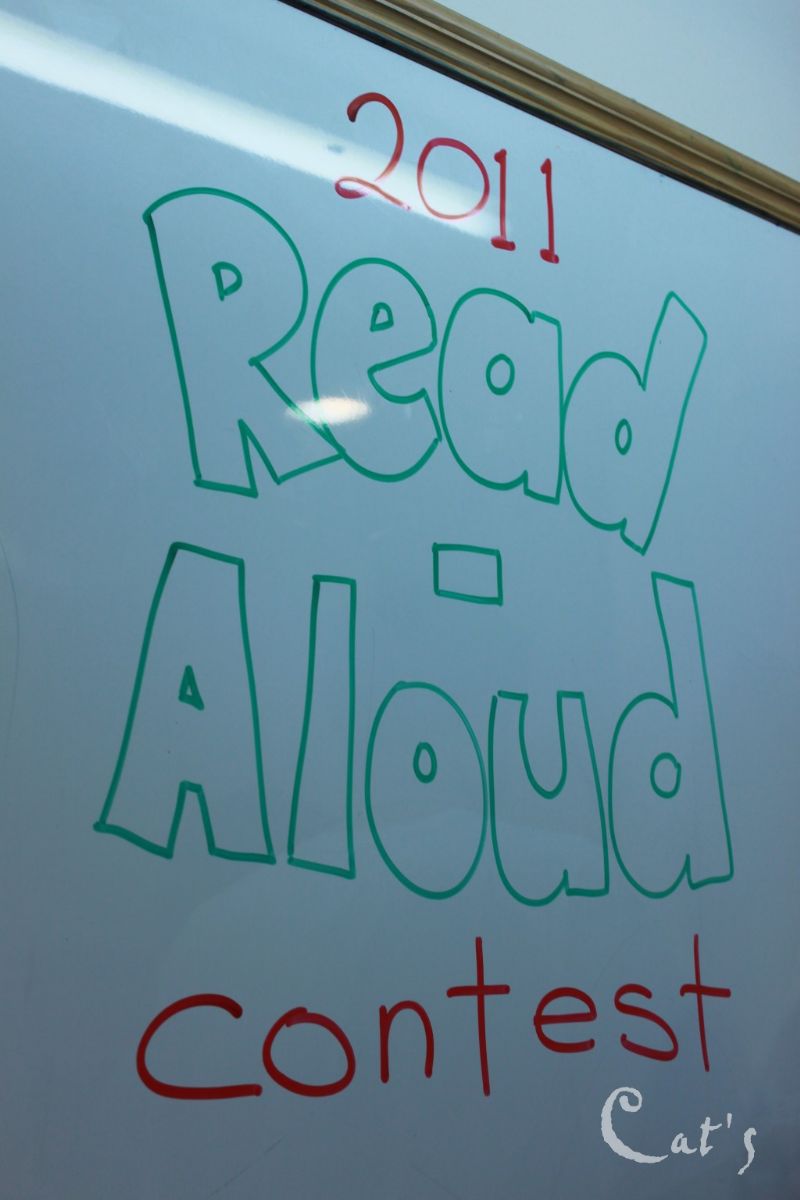 2011
Read
-
Aloud
contest
Cat's